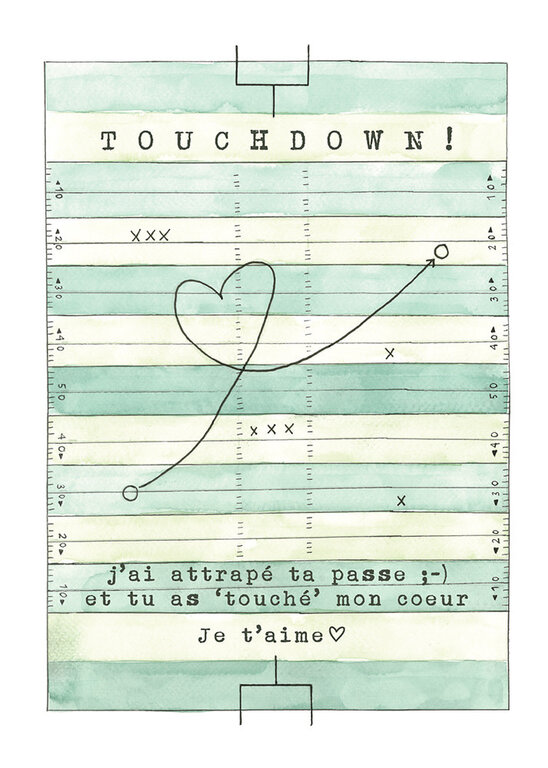 TOUCHDOWN!
◄10 10►
◄20 20►
xxx
◄30 30►
◄40 40►
x
50 50
40► ◄40
x x x
30► ◄30
x
20► ◄20
j'ai attrapé ta passe ;-)
et tu as ‘touché’ mon coeur
10► ◄10
Je t'aime♡